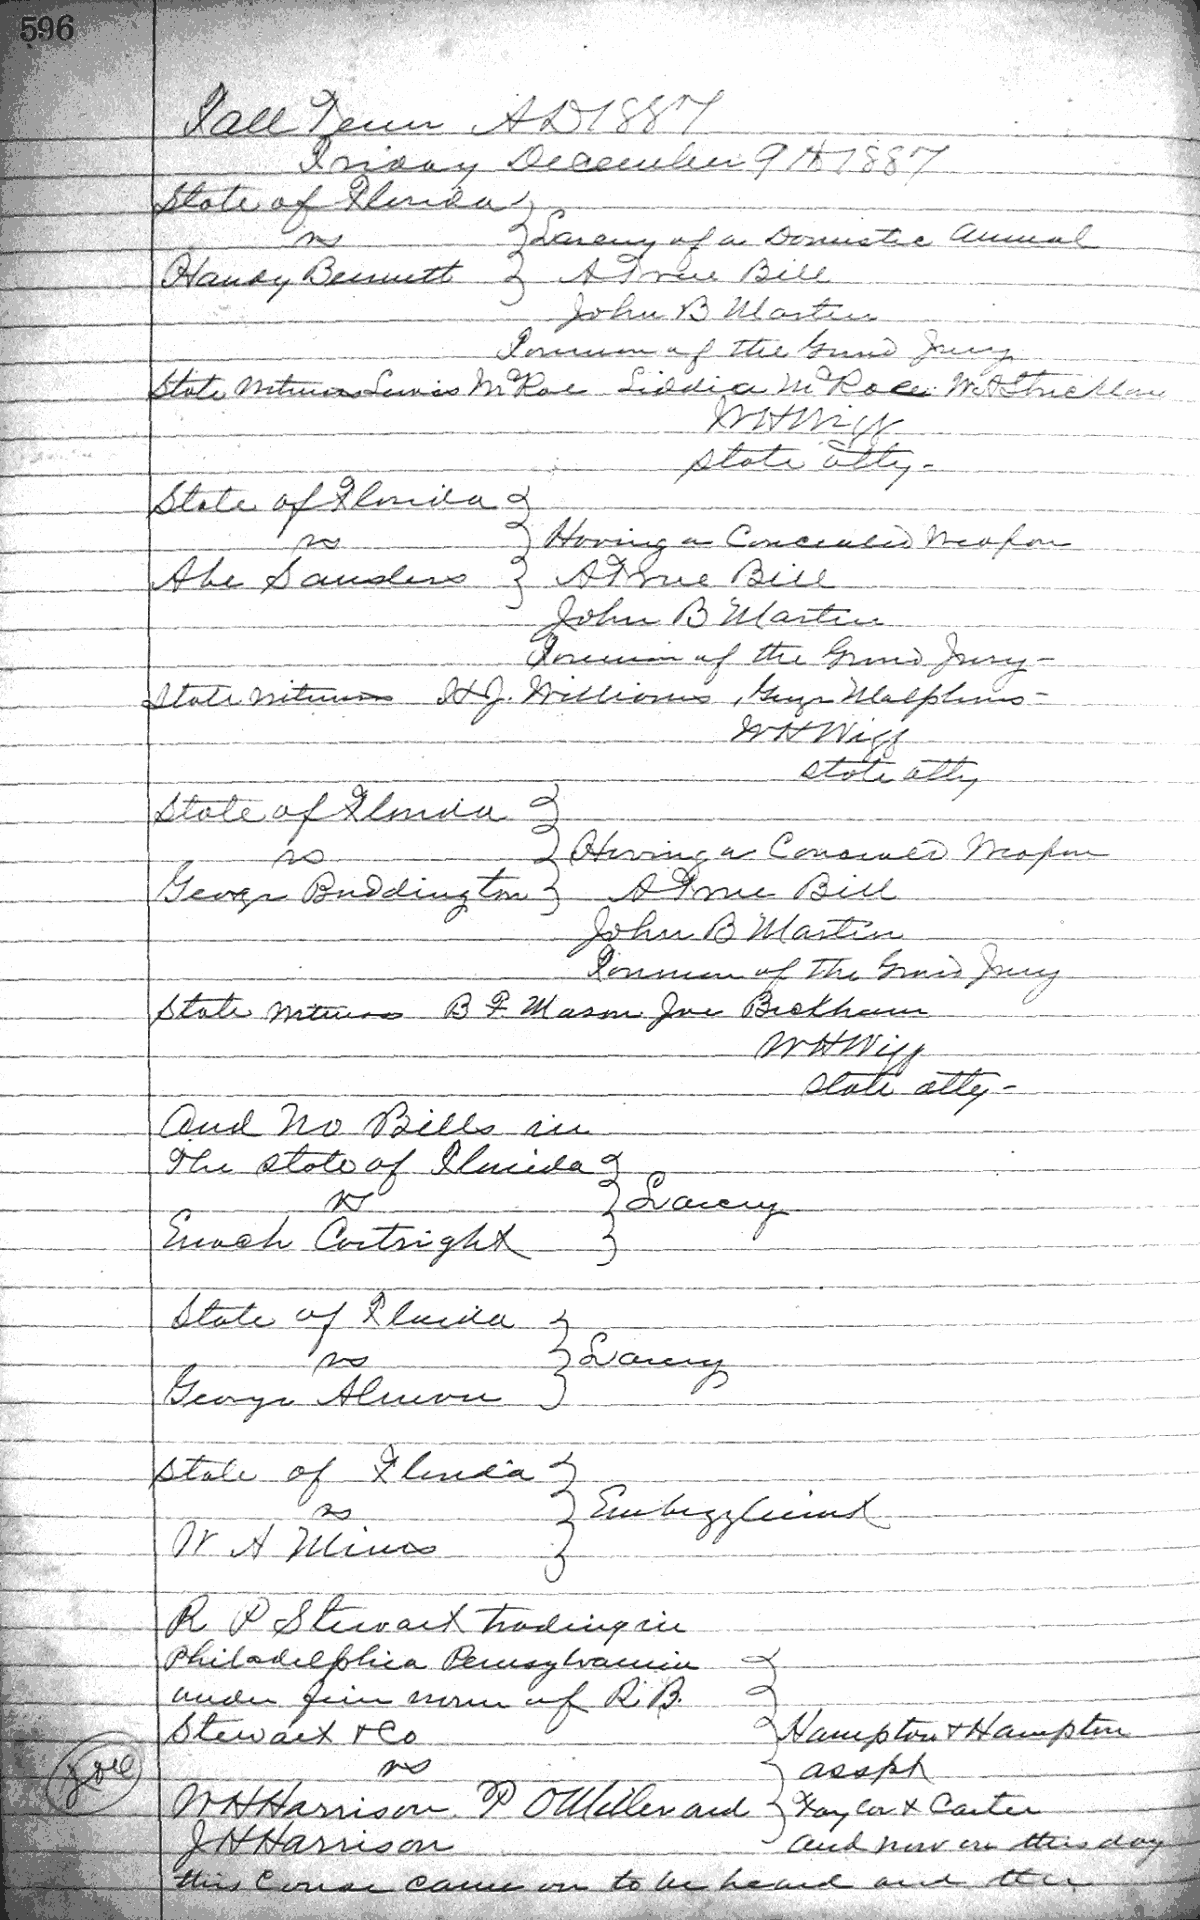 596
Fall Term AD 1887
Friday December 9th 1887
State of Florida
vs Larceny of a Domestic Animal
Handy Bennett A True Bill
John B Martin
Foreman of the Grand Jury
State Witness Lewis McRae Liddia McRae W A Stricklan
W H Wigg
State atty -
State of Florida
vs Having a Concealed Weapon
Abe Sanders A True Bill
John B Martin
Foreman of the Grand Jury -
State Witness H J. Williams, Malphus -
W H Wigg
State atty
State of Florida
vs Having a Concealed Weapon
George Buddington A True Bill
John B Martin
Foreman of the Grand Jury
State Witness B F Mason Joe Beckham
W H Wigg
State atty -
And No Bills in
The State of Florida
vs Larceny
Enoch Cortright
State of Florida
vs Larceny
George
State of Florida
vs Embezzlement
W A
R P Stewart trading in
Philadelphia Pennsylvania
under firm name of R. B.
Stewart & Co Hampton & Hampton
vs
W H Harrison P O Miller and & Carter
J H Harrison and now on this day
this Cause came on to be heard and the